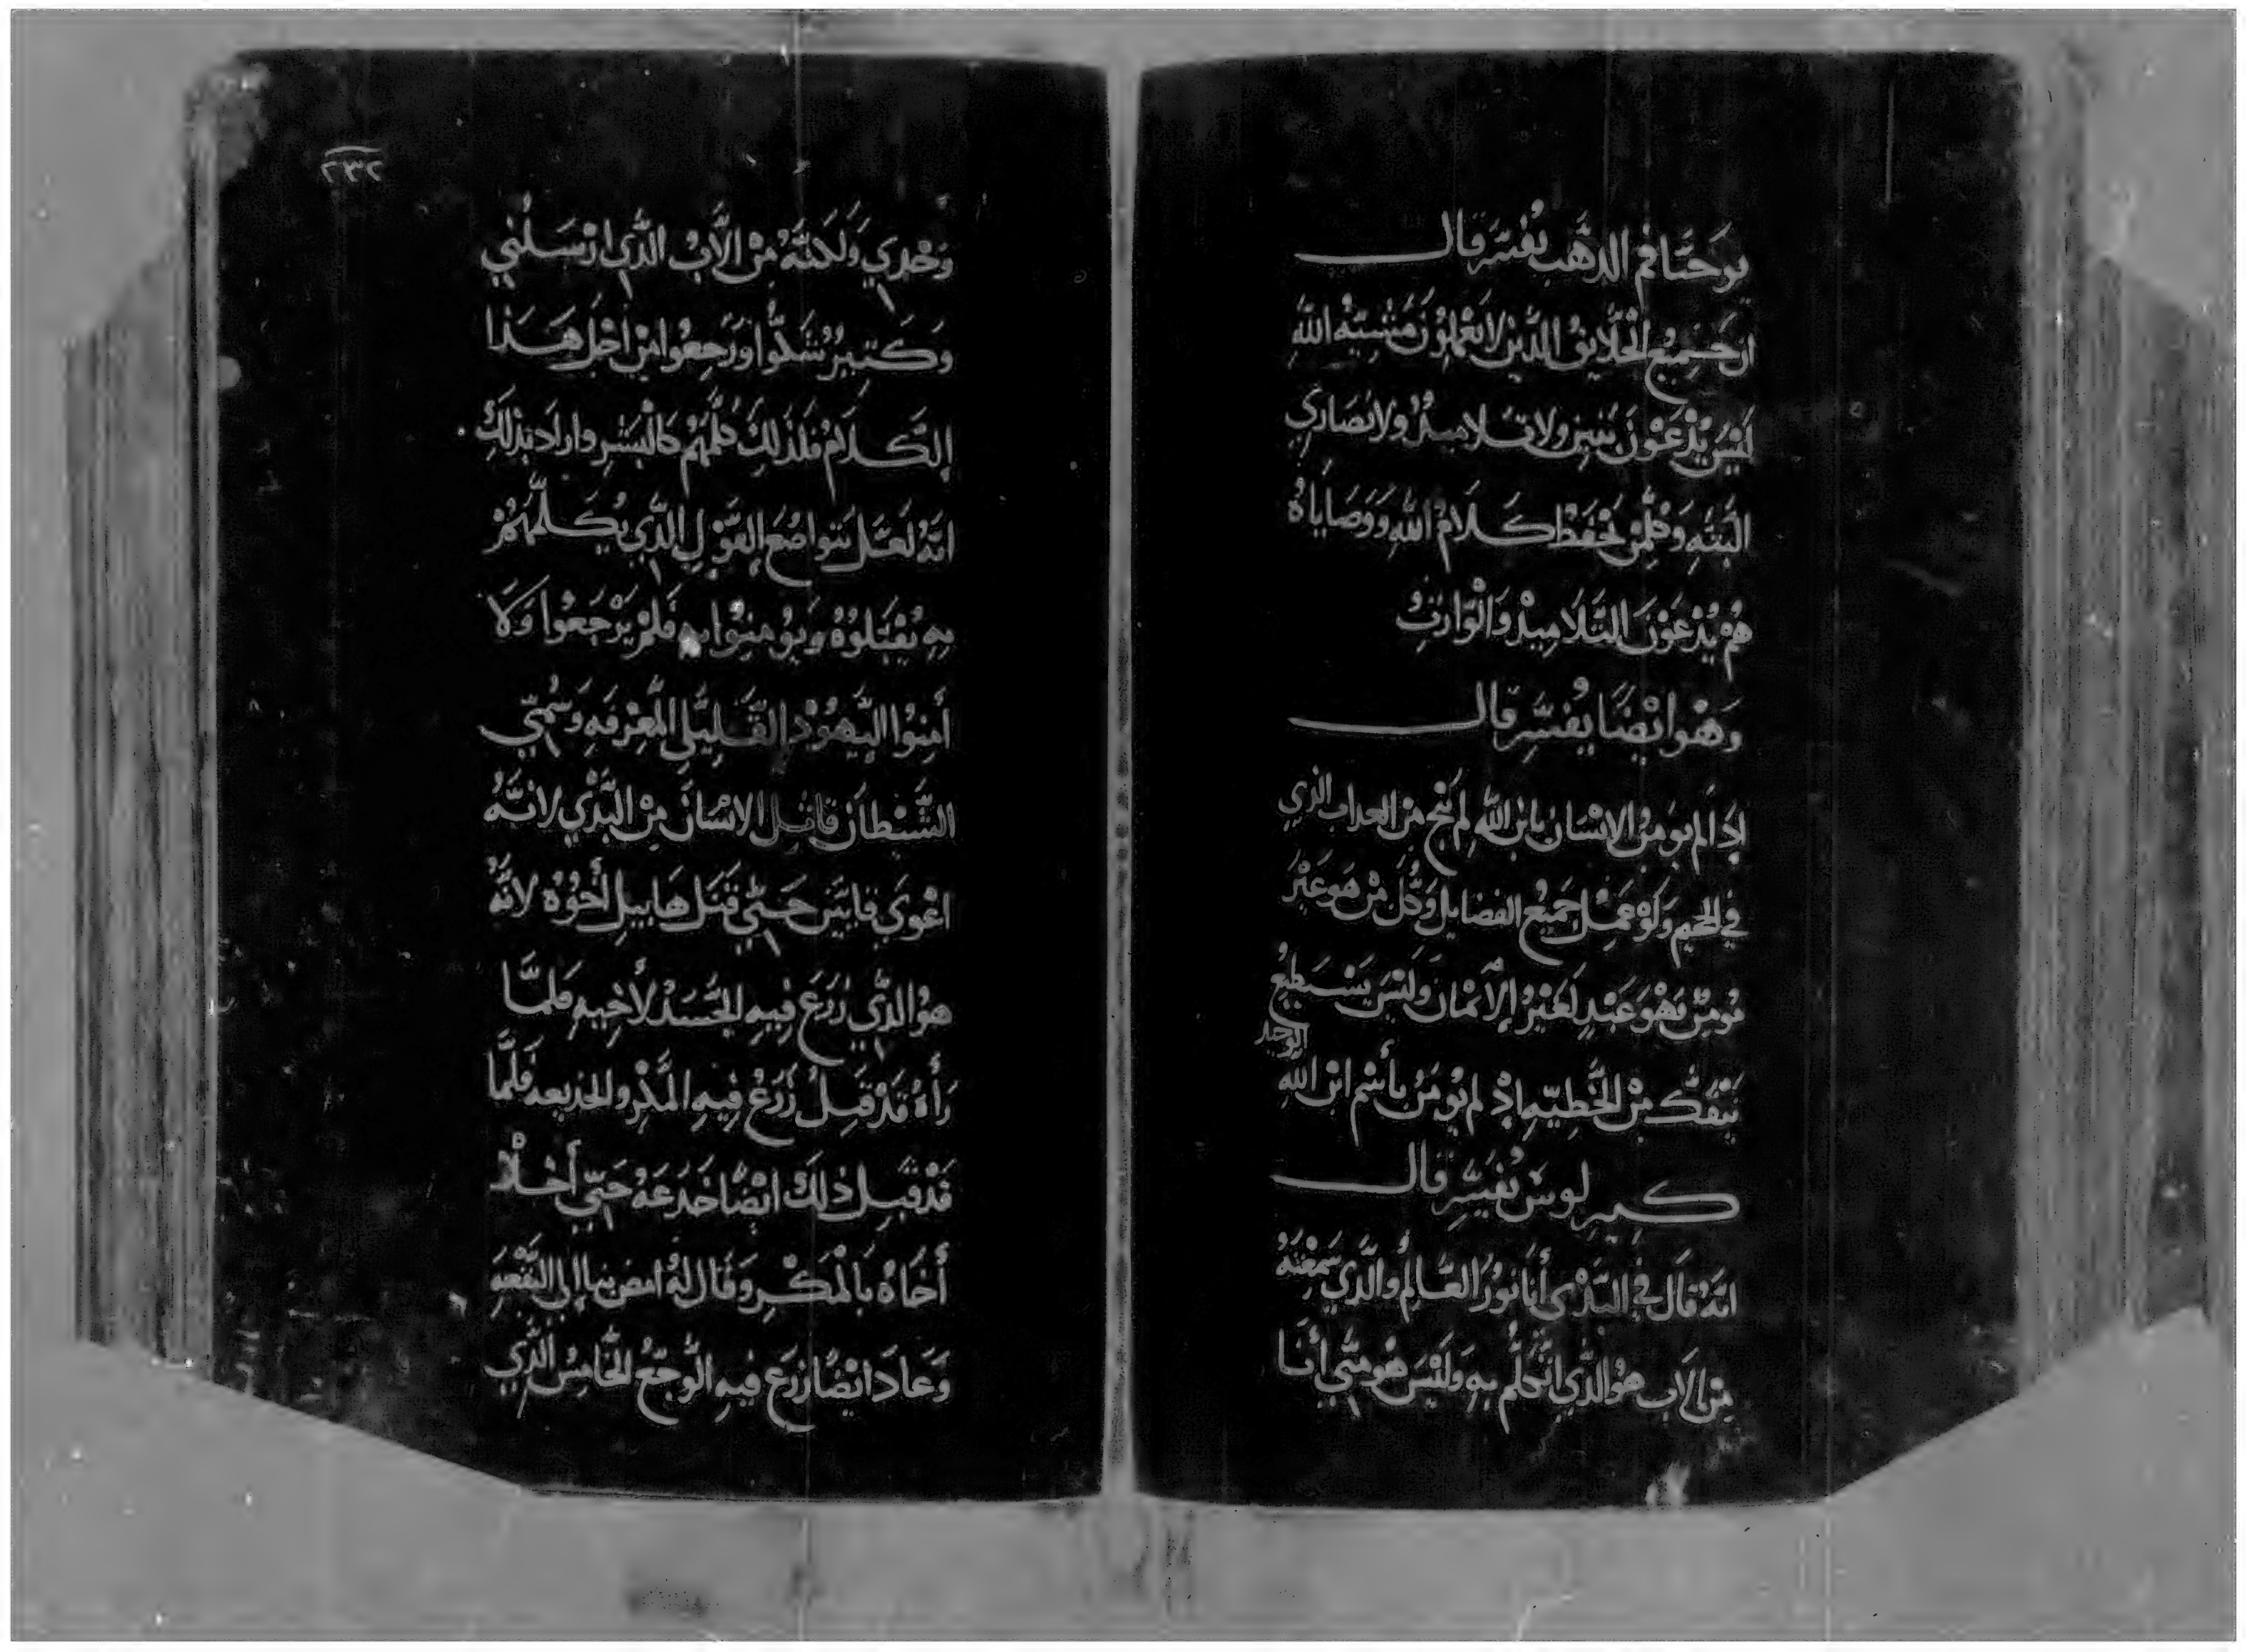 يوحنا فم الذهب يفسر قال
ان جميع الخلايق الذين لا يعملون مشيئة الله
ليس يدعون بنين ولا تلاميذ ولا نصاري
البته وكلمن يحفظ كلام الله ووصاياه
هم يدعون التلاميذ والوارث
وهو ايضا يفسر قال
إذا لم يومن الإنسان بابن الله لم ينج من العداب الذي
في الجحيم ولو عمل جميع الفضايل وكل من هو غير
مومن فهو عبد لغير الإيمان وليس يستطيع
ينفك من الخطيه إذ لم يومن بأسم ابن الله
الوحيد
كيرلوس يفسر قال
انه قال في البدي أنا نور العالم والذي سمعته
من الاب هو الذي اتكلم به وليس هو مني أنا
٢٣٢
وحدي ولكنه من الاب الذي ارسلني
وكثير شكوا ورجعوا من اجل هذا
الكلام فلذلك كلمهم كالبشر واراد بذلك
انه لعل بتواضع القول الذي يكلمهم
به يقبلوه ويومنوا به فلم يرجعوا ولا
أمنوا اليهود القليلي المعرفه وسمي
الشيطان قاتل الانسان من البدي لانه
اغوي قايين حتي قتل هابيل أخوه لانه
هو الذي زرع فيه الحسد لأخيه فلما
رأه قد قبل زرع فيه المكر والخديعه فلما
قد قبل ذلك ايضا خدعه حتي أخلا
أخاه بالمكر وقال له امض بنا إلي البقعه
وعاد ايضا زرع فيه الوجع الخامس الذي